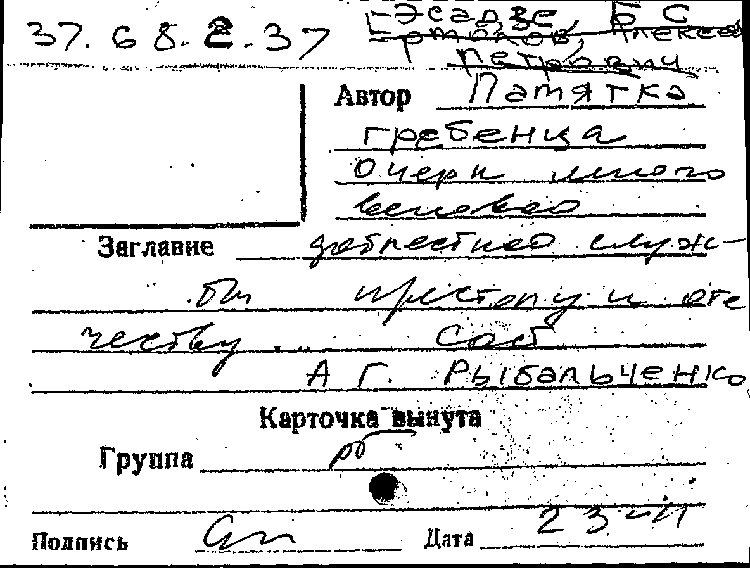 37.68.2.37 Эсадзе, Б С
Ермолов, Алексей
Петрович
Автор Памятка
гребенца
Очерк много
вековой
Заглавие доблестной служ-
бы престолу и оте
честву ... сост
А Г. Рыбальченко
Карточка вынута
Группа
Подпись
Дата 23-II